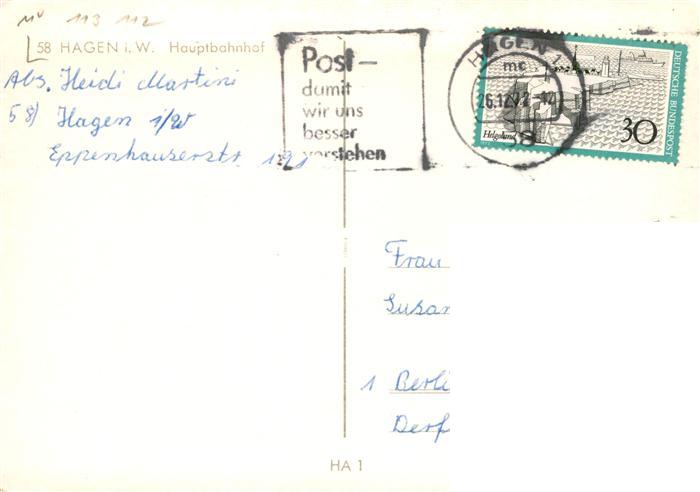 113 112
58 HAGEN i. W. Hauptbahnhof
Abs. Heidi Martini
58) Hagen i/W
Eppenhauserstr.
Post-
damit
wir uns
besser
verstehen
HAGEN
mc
58
DEUTSCHE BUNDESPOST
Helgoland
30
Frau
Susan
1 Berli
Derf
HA 1